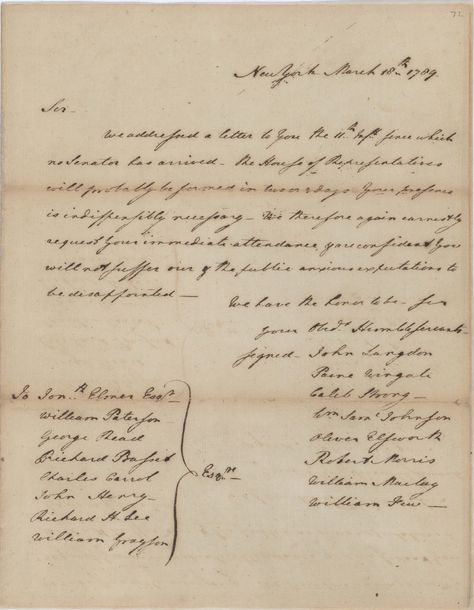 72
New York March 18th 1789
Sir
We addressed a letter to you the 11th Inst since which
no Senator has arrived - the House of Representatives
will probably be formed in two or 3 days Your presence
is indispensibly necessary - We therefore again earnestly
request Your immediate attendance, & are confident You
will not suffer our & the public anxious expectations to
be disappointed -
We have the honor to be - Sir
your Obedt Humble servants
signed - John Langdon
Paine Wingate
Caleb Strong -
Wm Saml Johnson
Oliver Elsworth
Robert Morris
William Maclay
William Few -
To Jonth Elmer Esqr
William Paterson
George Read
Richard Basset
Charles Carrol
John Henry -
Richard H Lee
William Grayson
Esqrs